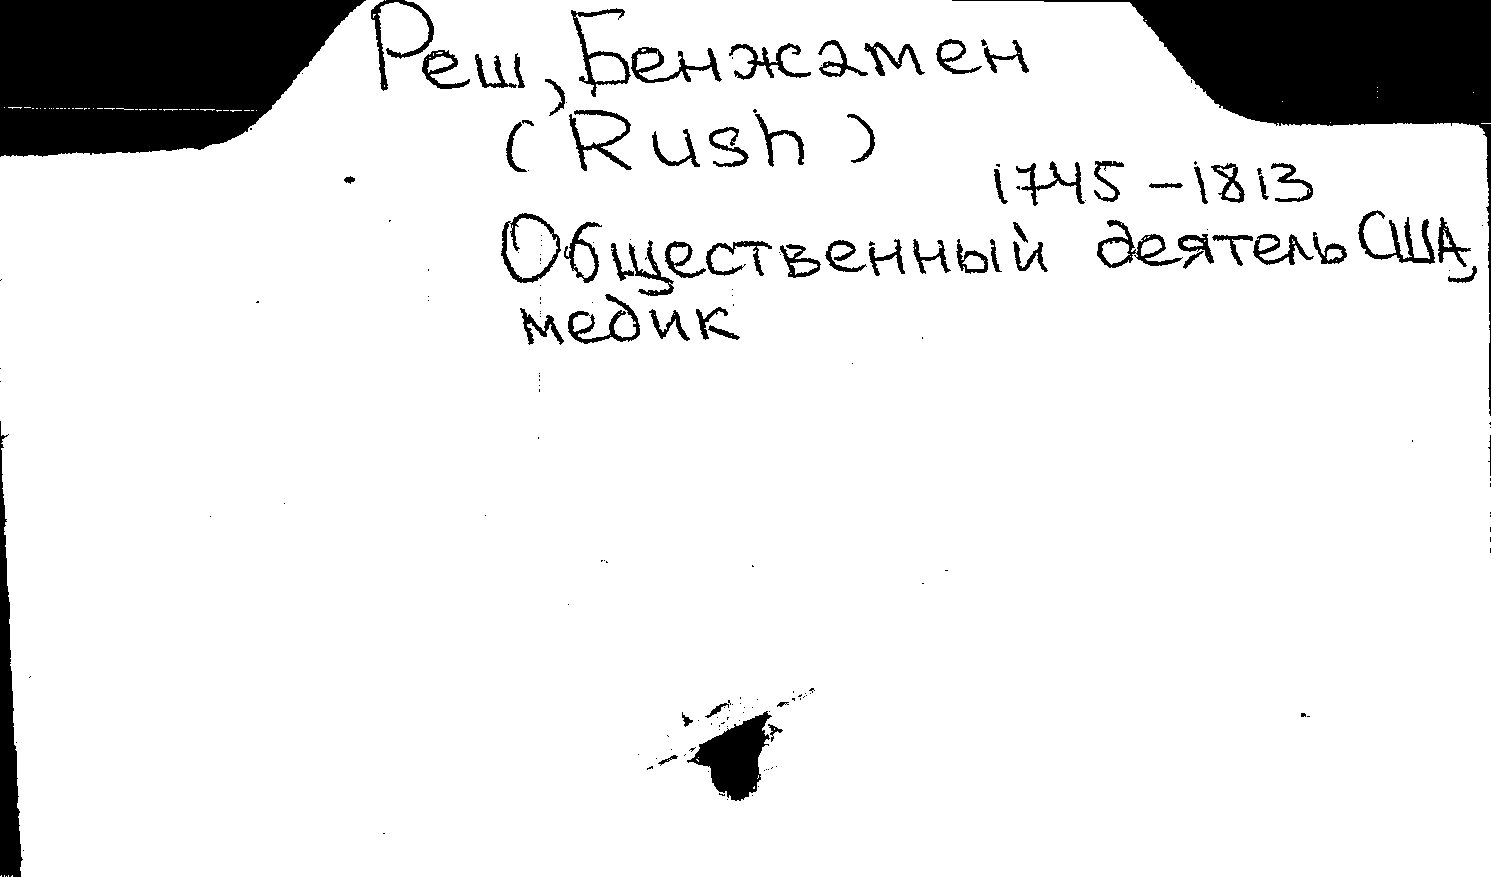 Реш, Бенжамен
(Rush)
1745-1813
Общественный деятель США,
медик